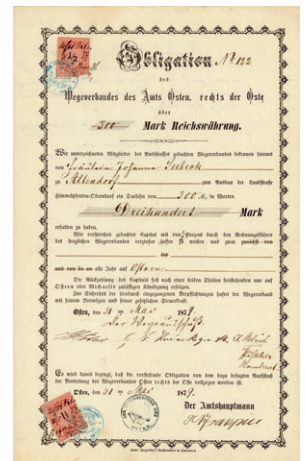 Obligation No 122
des
Wegeverbandes des Amts Osten, rechts der Oste
über
300 Mark Reichswährung.
Wir unterzeichneten Mitglieder des Ausschusses gedachten Wegeverbandes bekennen hiermit
von Fräulein Johanna Seebeck
zu Altendorf zum Ausbau der Landstraße
Himmelpforten-Oldendorf ein Darlehen von 300 M, in Worten
Dreihundert Mark
erhalten zu haben.
Wir versprechen gedachtes Capital mit Procent durch den Rechnungsführer
des Wegeverbandes verzinsen zu wollen und zwar
des
alle Jahr auf Ostern.
Die Rückzahlung des Capitals soll nach einer beiden Theilen freistehenden nur auf
Ostern oder Michaelis zulässigen Kündigung erfolgen.
Zur Sicherheit der hierdurch eingegangenen Verpflichtungen haftet der Wegeverband
mit seinem Vermögen und seiner gesetzlichen Steuerkraft.
Osten, den 31 ten Mai 1879.
Der Wegeausschuß.
Es wird hiermit bezeugt, daß die vorstehende Obligation von dem dazu befugten Ausschuß
der Vertretung des Wegeverbandes Osten rechts der Oste vollzogen worden ist.
Osten, den 31 ten Mai 1879.
Der Amtshauptmann